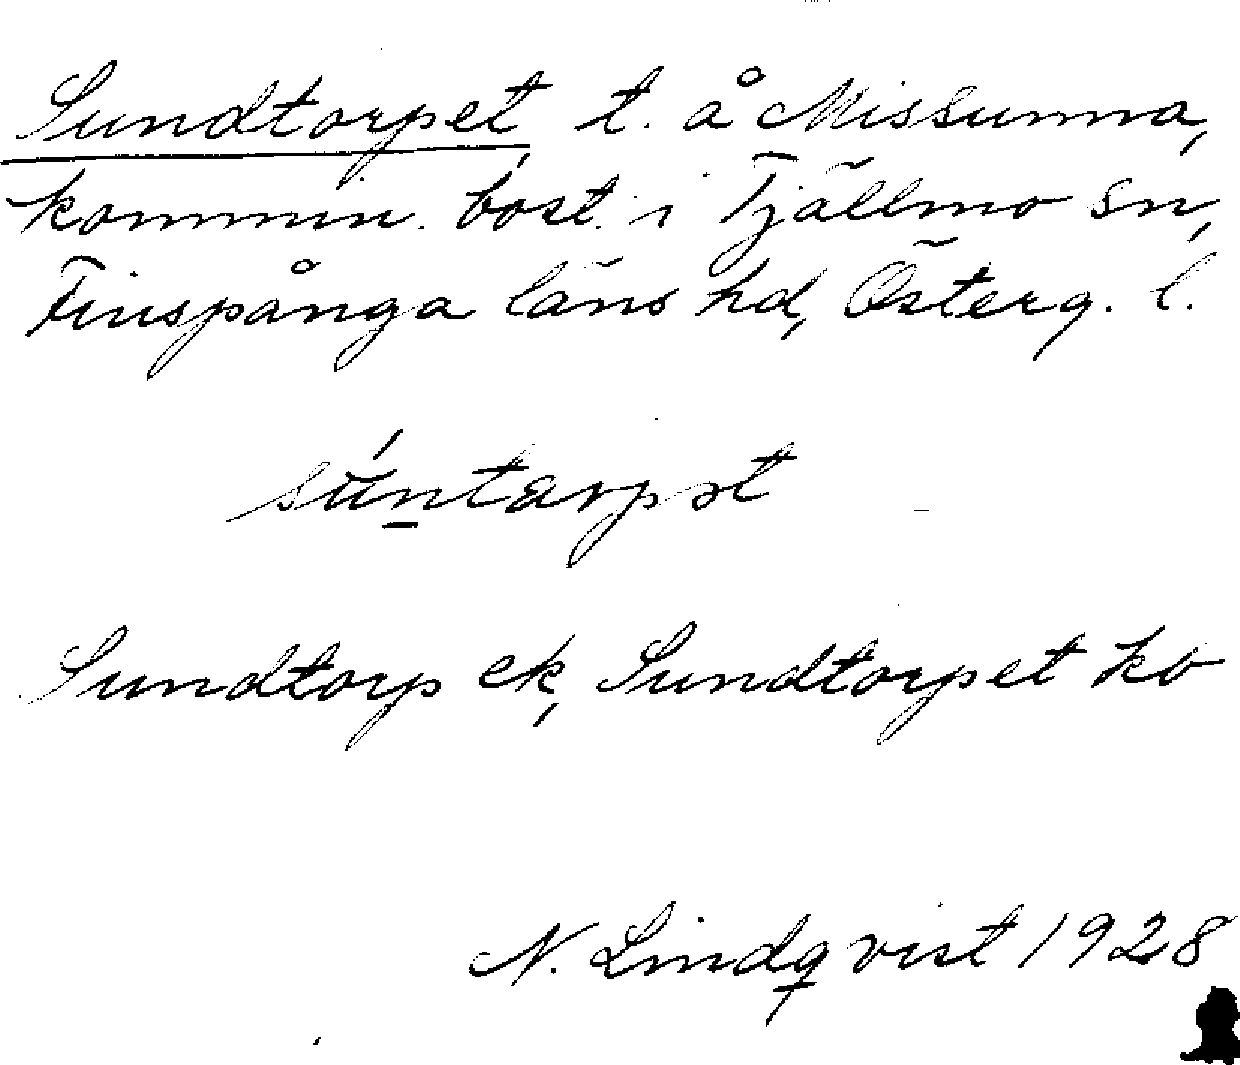 Sundtorpet t. å Missunna,
kommin. bost. i Tjällmo sn,
Finspånga läns hd, Österg. l.
súntarpət
Sundtorp ek, Sundtorpet kb
N. Lindqvist 1928